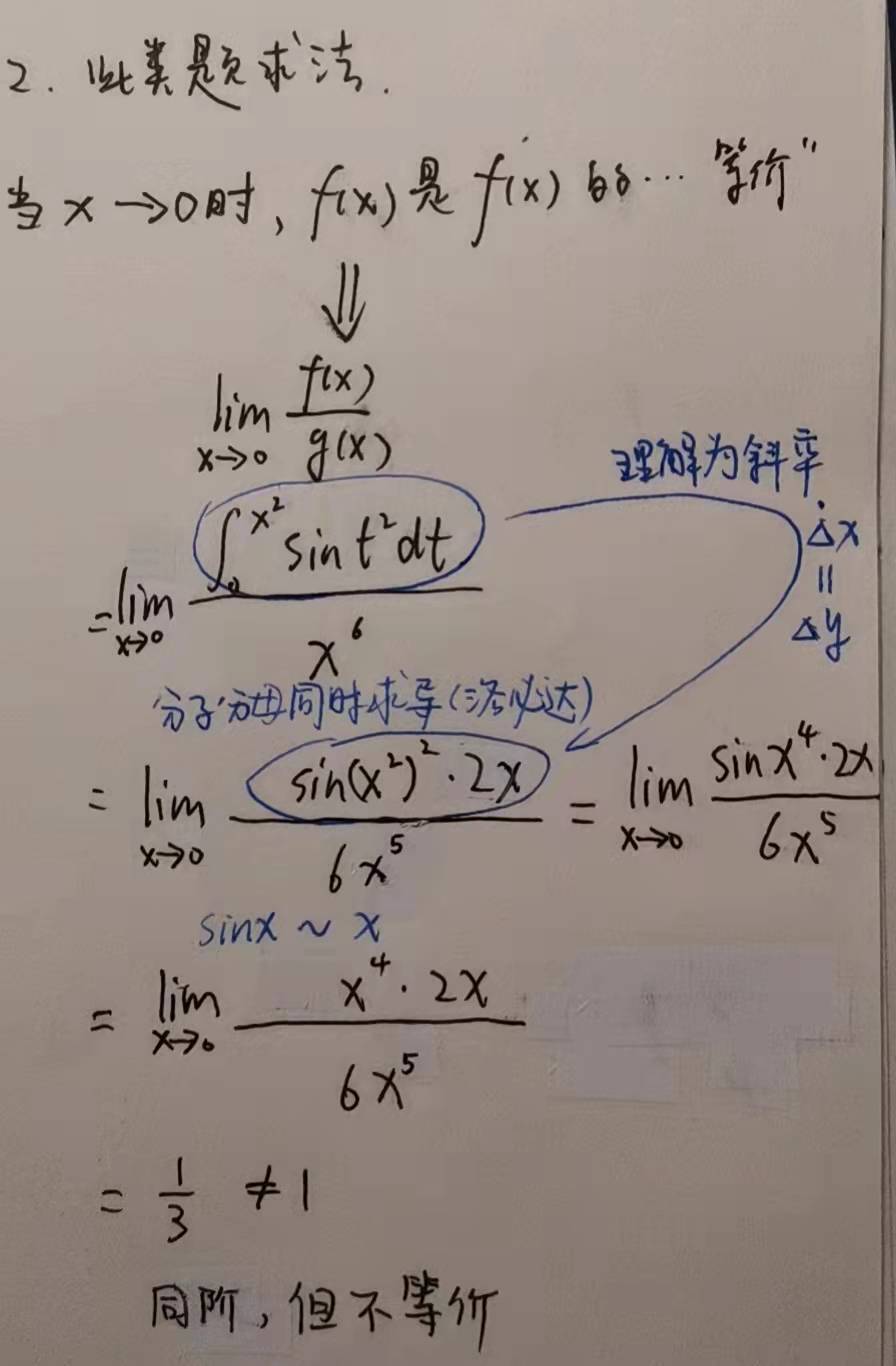 2. 此类题求法.
当 x →0时, f(x) 是 f(x) 的… "等价"
⇓
lim x→0 f(x)/g(x)
理解为斜率
= lim x→0 ∫₀^x² sin t² dt / x⁶
Δx
॥
Δy
分子分母同时求导(洛必达)
= lim x→0 sin(x²)²·2x / 6x⁵ = lim x→0 sinx⁴·2x / 6x⁵
sinx ~ x
= lim x→0 x⁴·2x / 6x⁵
= 1/3 ≠ 1
同阶, 但不等价